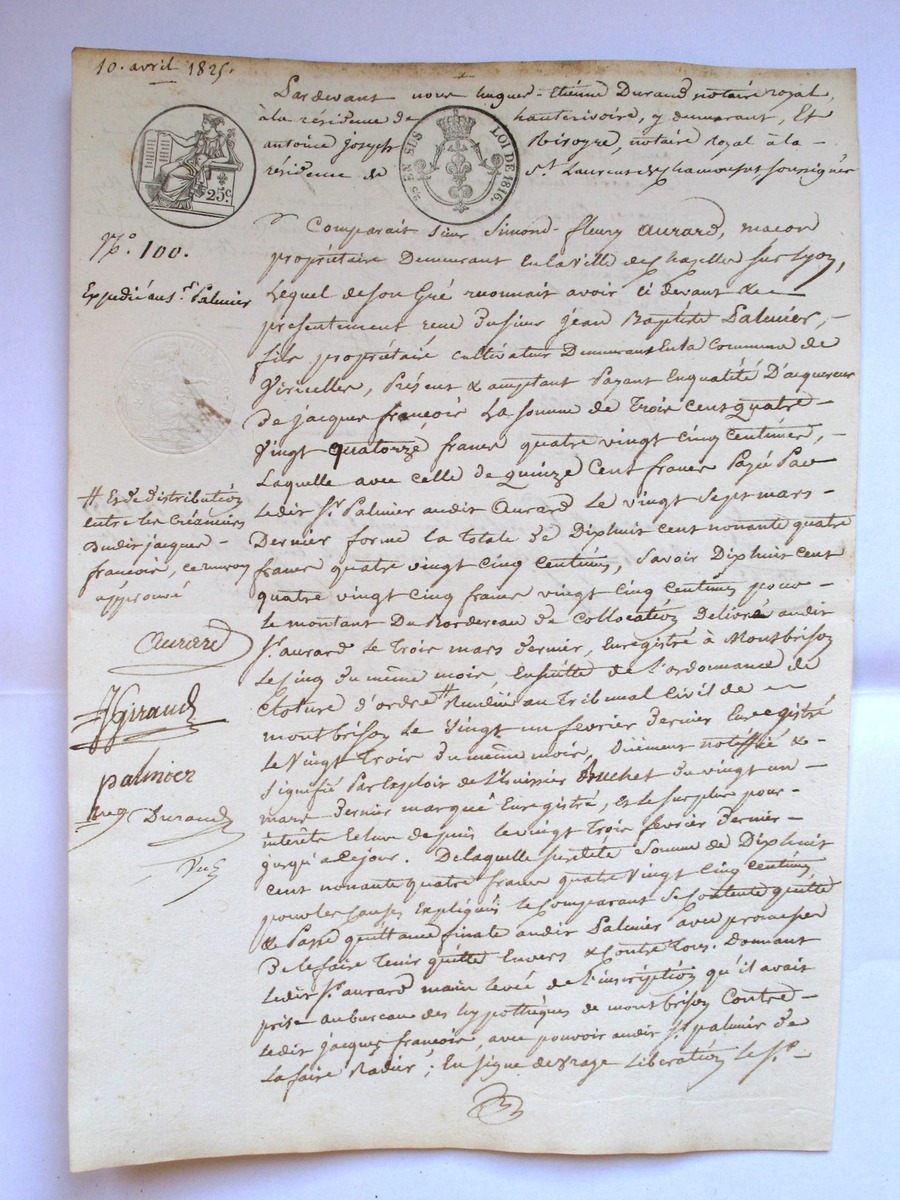 10. avril 1825.
Pardevant nous hugues-Etienne Durand notaire royal,
à la résidence de hauterivoire, y demeurant, Et
antoine joseph notaire royal à la
résidence de St. Laurent de Chamousset soussignés
25c
25c. EN SUS
LOI DE 1816.
No. 100.
Expédié au sr. Palmier
Comparait sieur Simond-fleury aurard, macon
propriétaire Demeurant En la Ville de Chazelles sur Lyon,
Lequel de son Gré reconnait avoir ci devant &
presentement reçu du sieur jean Baptiste Palmier,
fils propriétaire cultivateur Demeurant En la Commune de
Viricelles, Présent & acceptant Payant En qualité D'acquereur
De jacques françois La somme de Trois cent quatre
Vingt quatorze francs quatre vingt cinq centimes,
Laquelle avec celle de quinze Cent francs Payée Par
Ledit Sr. Palmier audit Aurard Le vingt sept mars
Dernier forme la totale de Dixhuit cent nonante quatre
francs quatre vingt cinq centimes, savoir Dixhuit cent
quatre vingt cinq francs vingt cinq centimes pour
le montant Du Bordereau de Collocation Délivré audit
Sr. aurard le Trois mars dernier, Enregistré à Montbrison
Le cinq du même mois, Ensuite de l'ordonnance de
Cloture d'ordre # Rendue au Tribunal Civil de
montbrison le Vingt un fevrier dernier Enregistré
Le Vingt Trois du même mois, Duëment notiffié &
signifié Par Exploit de L'huissier Du vingt un
mars dernier marqué Enregistré, Et le surplus pour
interêts Echus depuis le vingt Trois fevrier dernier
jusqu'à ce jour. De laquelle susdite somme de Dixhuit
cent nonante quatre francs quatre Vingt cinq centimes
pour les causes Expliquées le comparant se contente quitte
& Passe quittance finale audit Palmier avec promesse
De le faire Tenir quitte Envers & Contre Tous. Donnant
Ledit Sr. aurard main levée de l'inscription qu'il avait
prise au bureau des hypothèques de montbrison Contre
Ledit jacques françois, avec pouvoir audit Sr. palmier de
La faire Radier; En signe de vraye Libération le Sr.
# Et de distribution
entre les Créanciers
dudit jacques
francois, ce renvoy
approuvé
Aurard
Giraud
palmier
Durand